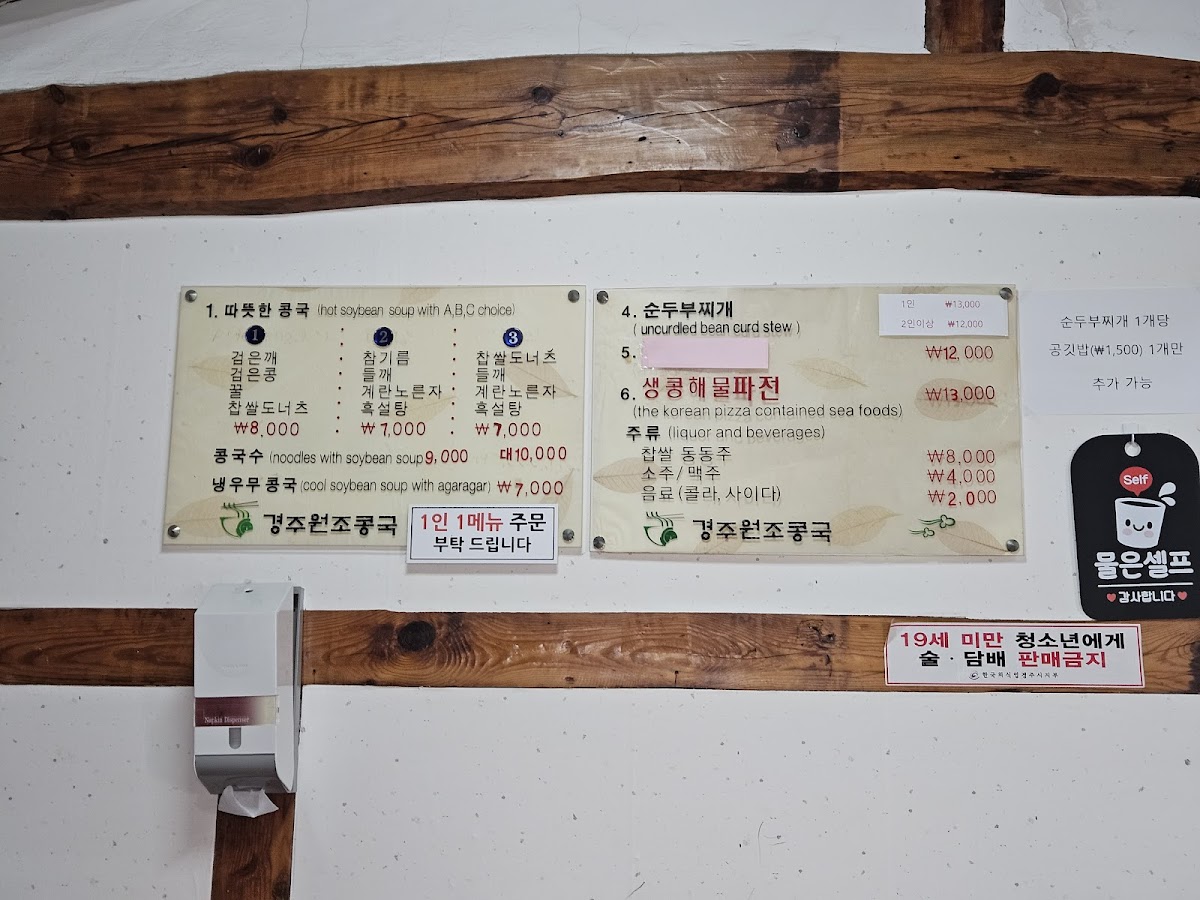 1. 따뜻한 콩국 (hot soybean soup with A,B,C choice)
1
검은깨
검은콩
꿀
찹쌀도너츠
₩8,000
2
참기름
들깨
계란노른자
흑설탕
₩7,000
3
찹쌀도너츠
들깨
계란노른자
흑설탕
₩7,000
콩국수 (noodles with soybean soup 9,000 대10,000
냉우무콩국 (cool soybean soup with agaragar) ₩7,000
경주원조콩국
1인 1메뉴 주문
부탁 드립니다
4. 순두부찌개
( uncurdled bean curd stew )
1인 ₩13,000
2인이상 ₩12,000
5. ₩12,000
6. 생콩해물파전 ₩13,000
(the korean pizza contained sea foods)
주류 (liquor and beverages)
찹쌀 동동주 ₩8,000
소주/ 맥주 ₩4,000
음료 (콜라, 사이다) ₩2,000
경주원조콩국
순두부찌개 1개당
공깃밥(₩1,500) 1개만
추가 가능
Self
물은셀프
감사합니다
19세 미만 청소년에게
술 · 담배 판매금지
한국외식업경주시지부
Napkin Dispenser